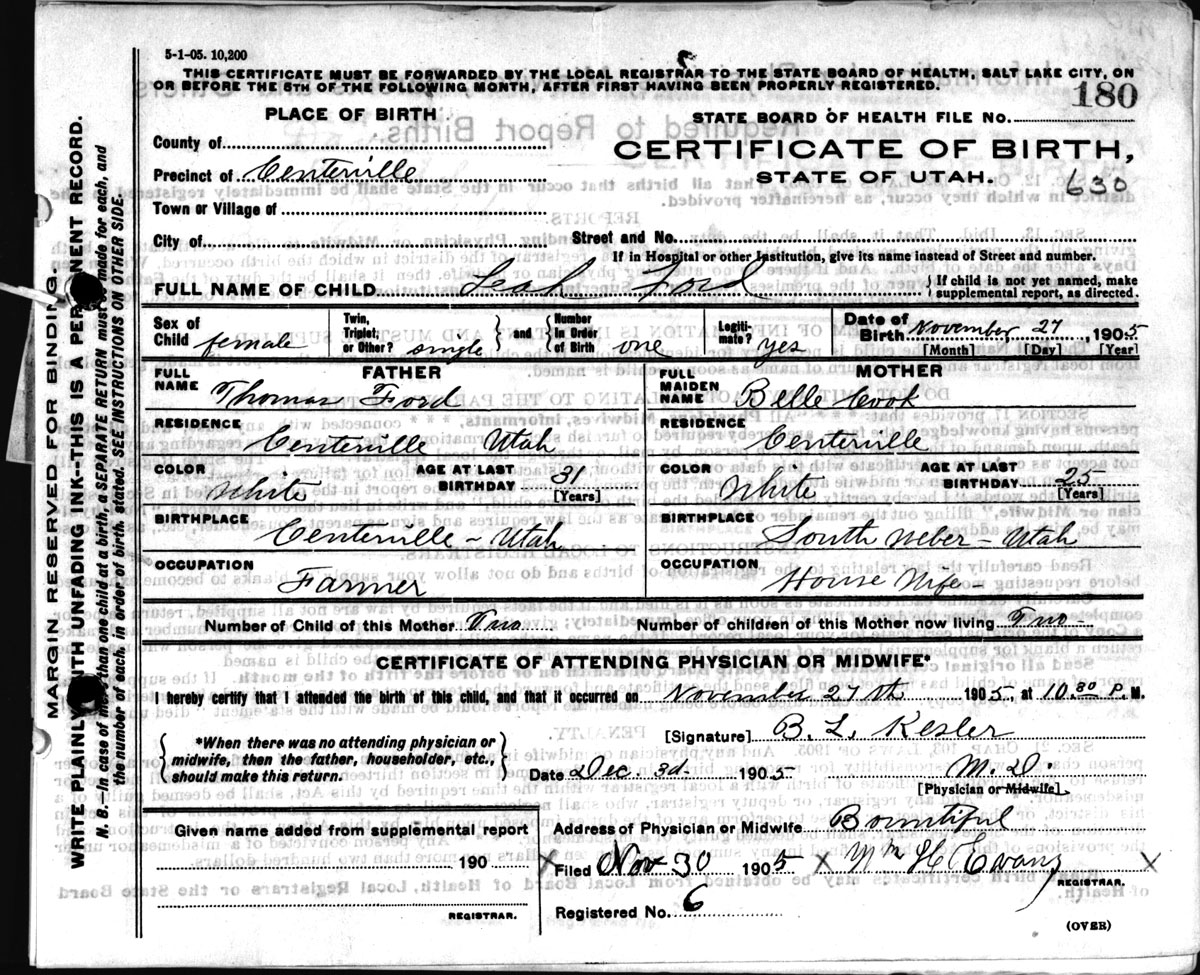 5-1-05. 10,200
THIS CERTIFICATE MUST BE FORWARDED BY THE LOCAL REGISTRAR TO THE STATE BOARD OF HEALTH, SALT LAKE CITY, ON
OR BEFORE THE 5TH OF THE FOLLOWING MONTH, AFTER FIRST HAVING BEEN PROPERLY REGISTERED.
180
PLACE OF BIRTH
STATE BOARD OF HEALTH FILE NO.
County of
CERTIFICATE OF BIRTH,
Precinct of Centerville
STATE OF UTAH.
630
Town or Village of
City of
Street and No.
If in Hospital or other Institution, give its name instead of Street and number.
FULL NAME OF CHILD Leah Ford
{If child is not yet named, make
supplemental report, as directed.
Sex of
Child female
Twin,
Triplet,
or Other? single
} and {
Number
In Order
of Birth one
Legiti-
mate? yes
Date of
Birth November 27, 1905
[Month] [Day] [Year]
FATHER
FULL
NAME Thomas Ford
MOTHER
FULL
MAIDEN
NAME Belle Cook
RESIDENCE
Centerville Utah
RESIDENCE
Centerville
COLOR
White
AGE AT LAST
BIRTHDAY 31
[Years]
COLOR
White
AGE AT LAST
BIRTHDAY 25
[Years]
BIRTHPLACE
Centerville - Utah
BIRTHPLACE
South Weber - Utah
OCCUPATION
Farmer
OCCUPATION
House Wife -
Number of Child of this Mother Two
Number of children of this Mother now living Two
CERTIFICATE OF ATTENDING PHYSICIAN OR MIDWIFE*
I hereby certify that I attended the birth of this child, and that it occurred on November 27th 1905, at 10.80 P. M.
{*When there was no attending physician or
midwife, then the father, householder, etc.,
should make this return.}
[Signature] B. L. Kesler
Date Dec. 3d. 1905
M.D.
[Physician or Midwife]
Given name added from supplemental report
190
REGISTRAR.
Address of Physician or Midwife Bountiful
X Filed Nov 30 1905 X Wm H Evans X
REGISTRAR.
Registered No. 6
(OVER)
MARGIN RESERVED FOR BINDING.
WRITE PLAINLY WITH UNFADING INK-THIS IS A PERMANENT RECORD.
N. B.-In case of more than one child at a birth, a SEPARATE RETURN must be made for each, and
the number of each, in order of birth, stated. SEE INSTRUCTIONS ON OTHER SIDE.